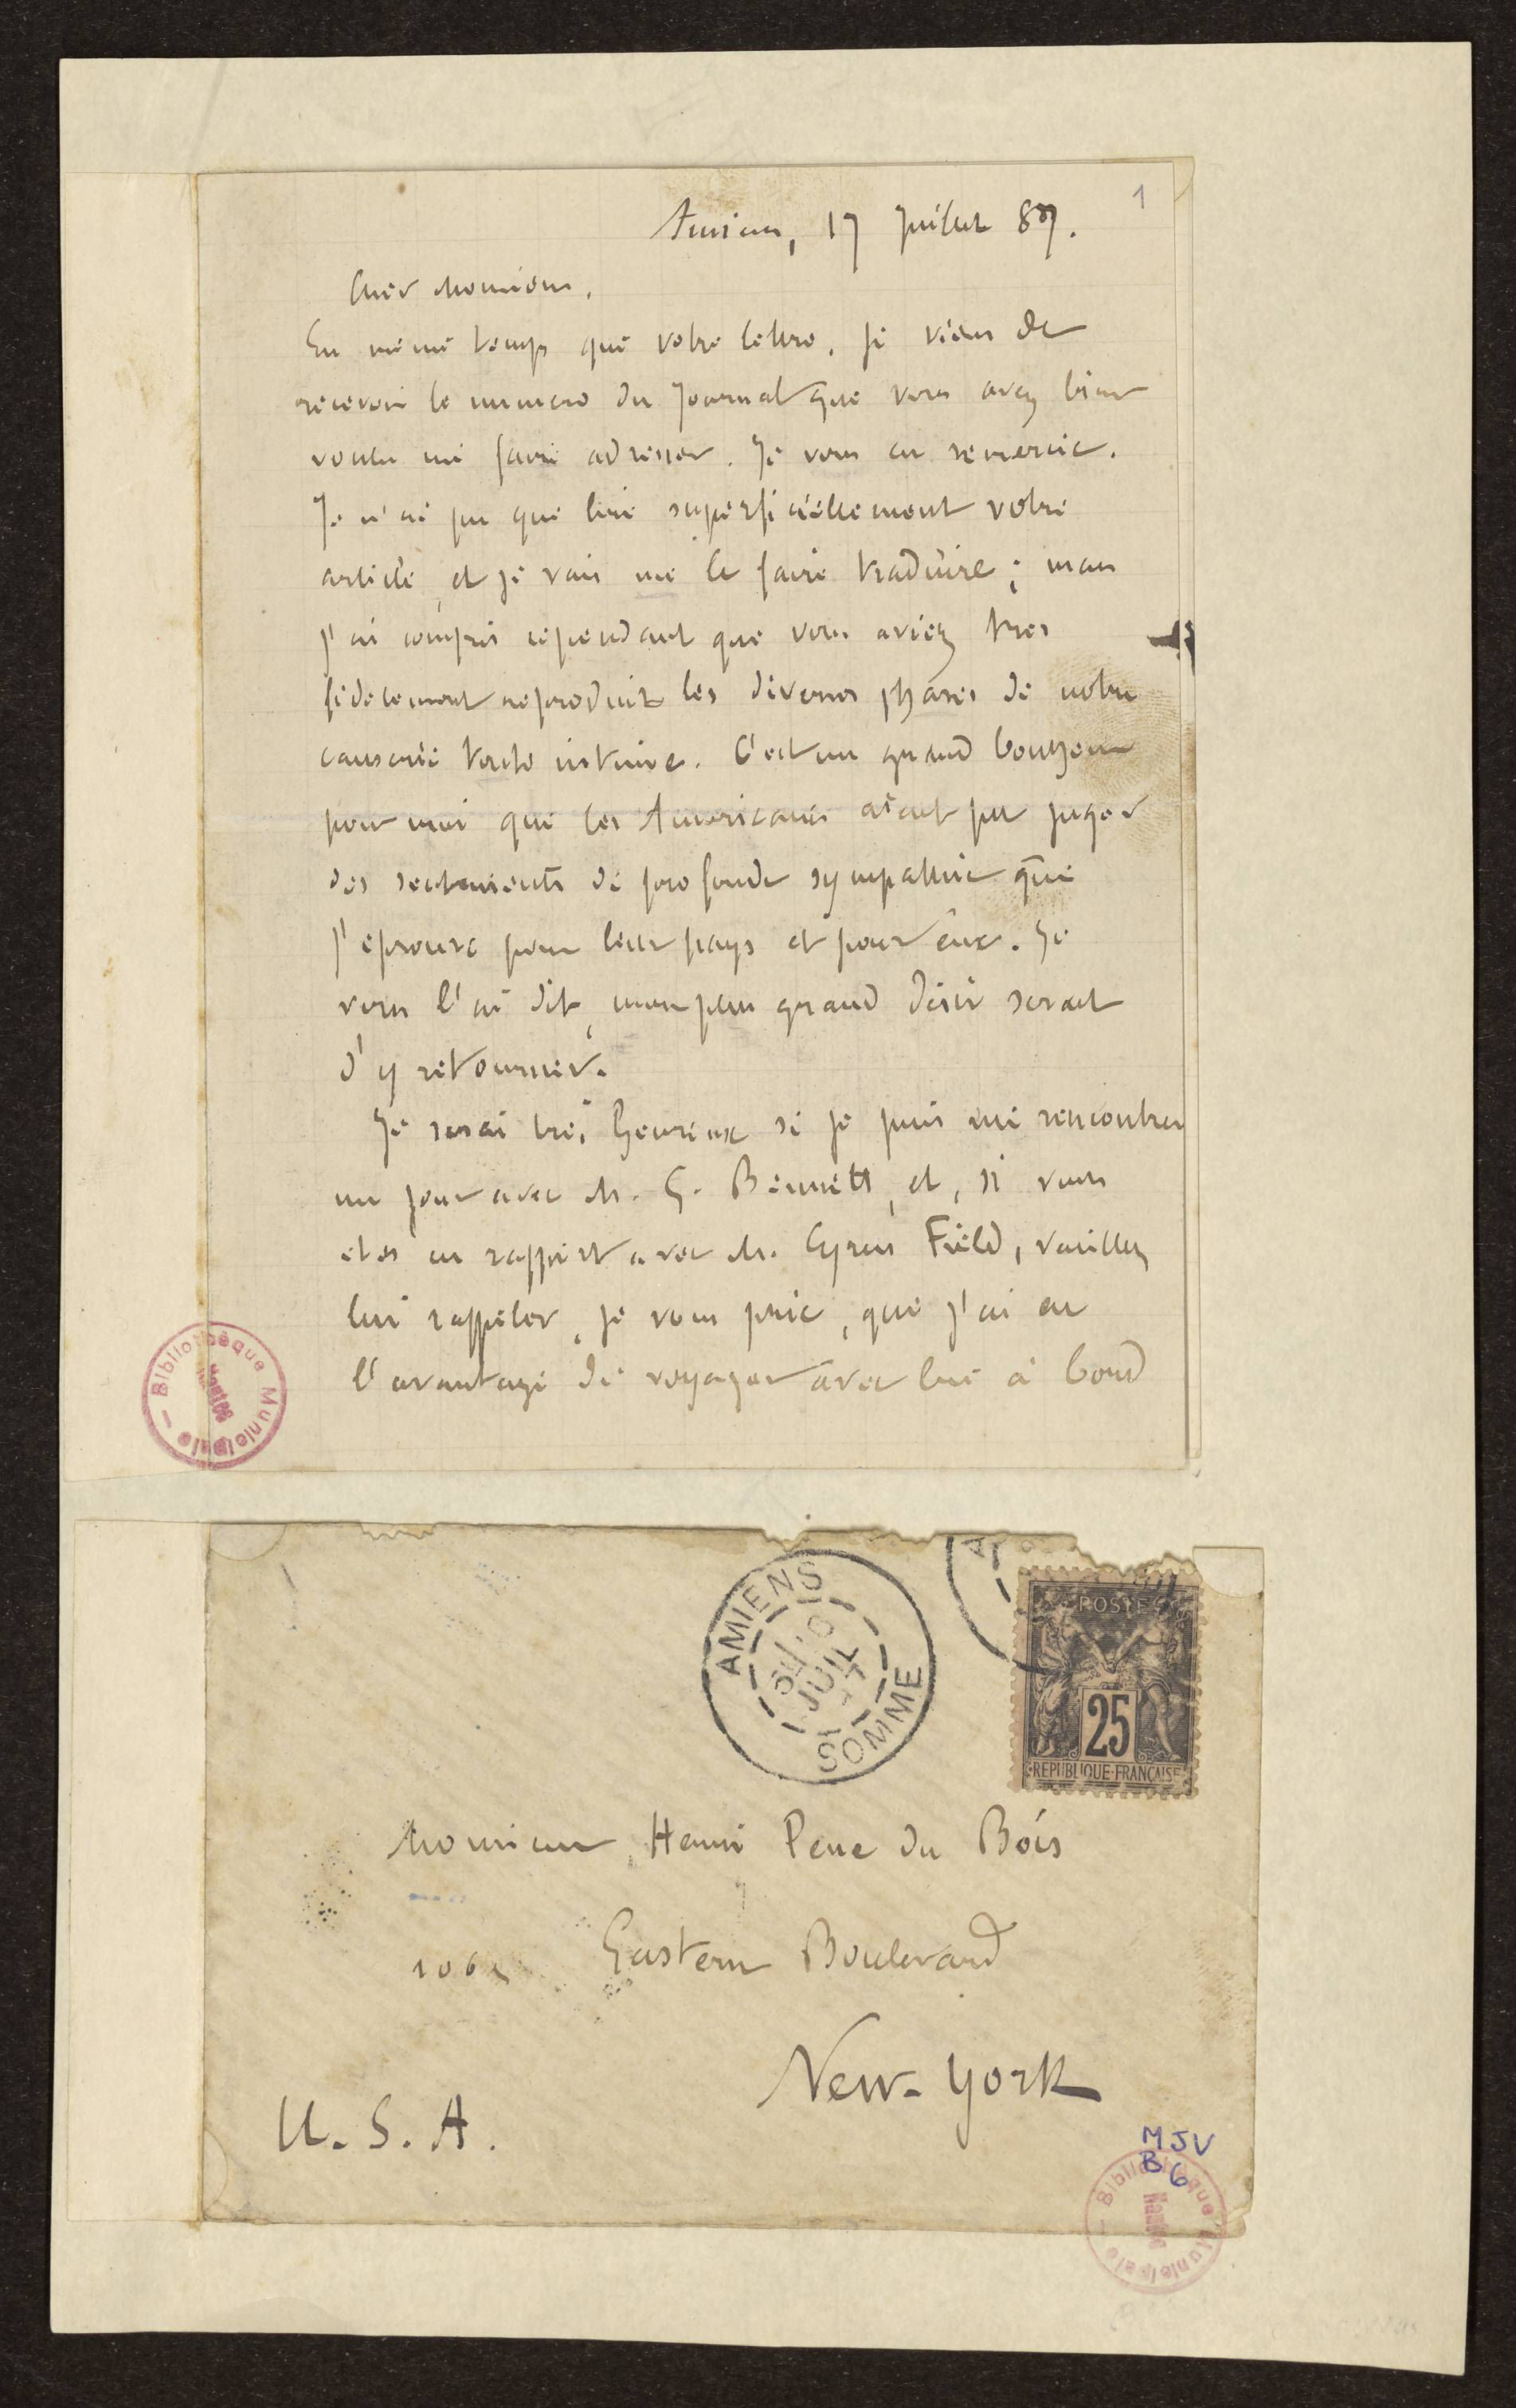 1
Amiens, 17 Juillet 87.
Cher Monsieur,
En même temps que votre lettre, je viens de
recevoir le numero du journal que vous avez bien
voulu me faire adresser. Je vous en remercie.
Je n'ai pu que lire superficiellement votre
article, et je vais me le faire traduire ; mais
j'ai compris cependant que vous aviez tres
fidelement reproduit les diverses phases de notre
causerie toute intime. C'est un grand bonheur
pour moi que les Americains aient pu juger
des sentiments de profonde sympathie que
j'eprouve pour leur pays et pour eux. Je
vous l'ai dit, mon plus grand désir serait
d'y retourner.
Je serai très heureux si je puis me rencontrer
un jour avec M. G. Bennett, et, si vous
etes en rapport avec M. Cyrus Field, veuillez
lui rappeler, je vous prie, que j'ai eu
l'avantage de voyager avec lui à bord
Bibliothèque Municipale
Nantes
AMIENS
JUIL
SOMME
A
POSTES
25
REPUBLIQUE FRANÇAISE
Monsieur Henri Pene du Bois
Eastern Boulevard
New-York
U. S. A.
MJV
B6
Bibliothèque Municipale
Nantes